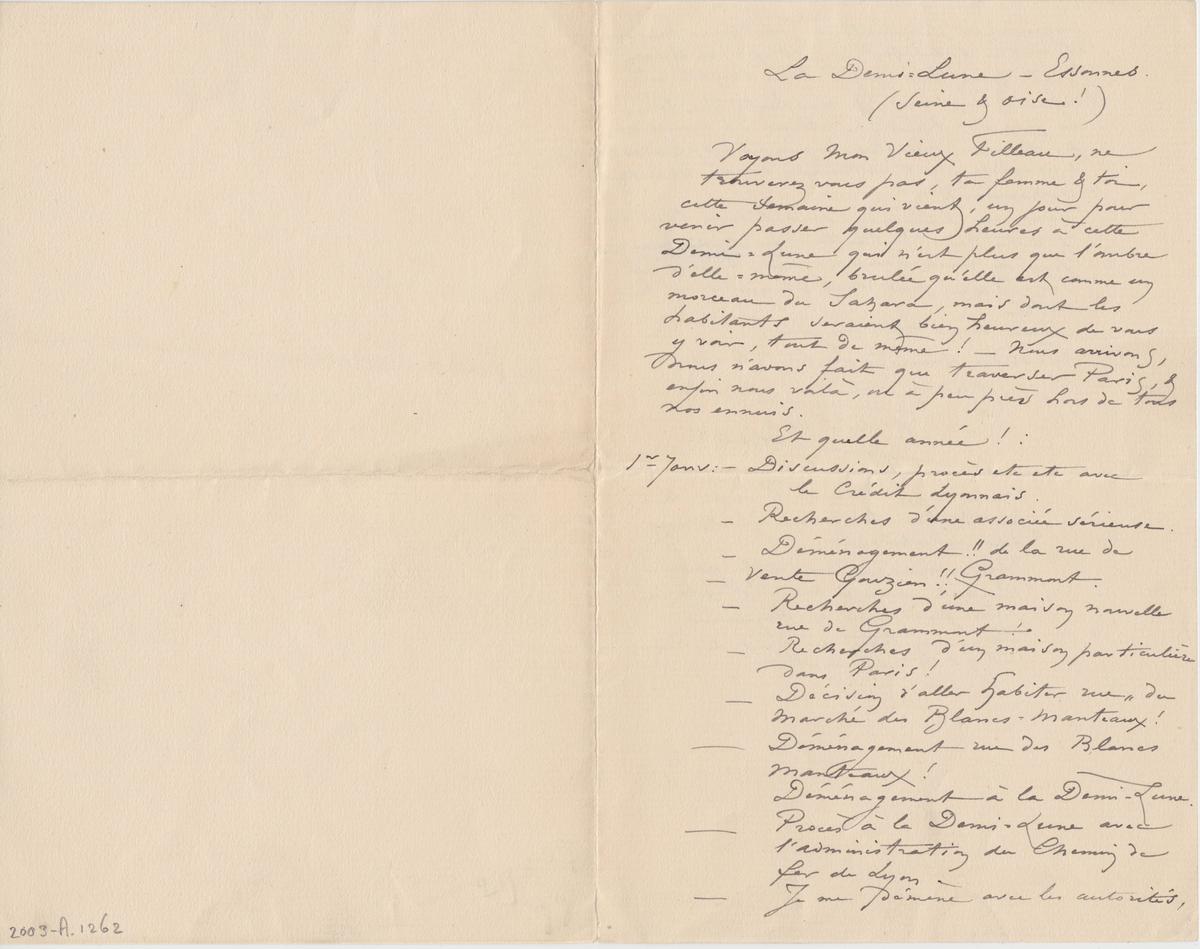 La Demi=Lune – Essonnes.
(Seine & Oise!)
Voyons Mon Vieux Filleau, ne
trouverez vous pas, ta femme & toi,
cette semaine qui vient, un jour pour
venir passer quelques heures à cette
Demi=Lune qui n'est plus que l'ombre
d'elle=même, brulée qu'elle est comme un
morceau du Sahara, mais dont les
habitants seraient bien heureux de vous
y voir, tout de même! – Nous arrivons,
nous n'avons fait que traverser Paris, &
enfin nous voilà, ou à peu près hors de tous
nos ennuis.
Et quelle année!:
1er Janv: – Discussions, procès etc etc avec
le Crédit Lyonnais.
– Recherches d'une associée sérieuse.
– Déménagement!! de la rue de
– Vente Gouzien!! Grammont.
– Recherches d'une maison nouvelle
rue de Grammont!
– Recherches d'un maison particulière
dans Paris!
– Décision d'aller habiter rue du
Marché des Blancs-Manteaux!
– Déménagement rue des Blancs
Manteaux!
Déménagement à la Demi-Lune.
– Procès à la Demi=Lune avec
l'administration du Chemin de
fer de Lyon –
– Je me démène avec les autorités,
2003-A.1262